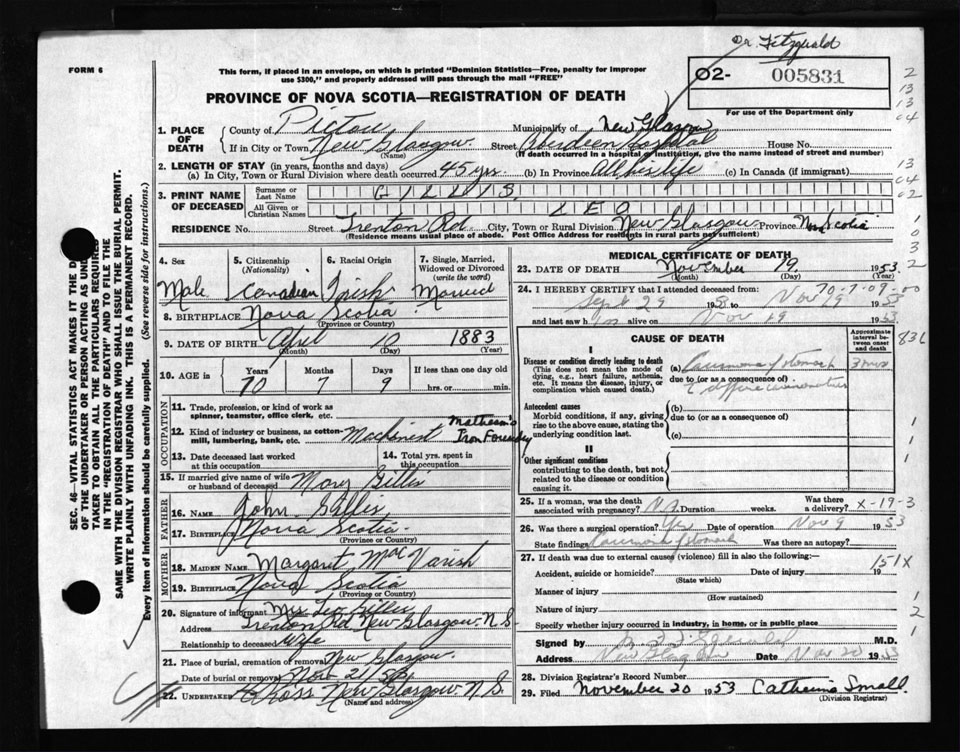 Dr. Fitzgerald
FORM 6
This form, if placed in an envelope, on which is printed "Dominion Statistics—Free, penalty for improper use $300," and properly addressed will pass through the mail "FREE"
02- 005831
For use of the Department only
PROVINCE OF NOVA SCOTIA—REGISTRATION OF DEATH
1. PLACE OF DEATH County of Pictou Municipality of New Glasgow
If in City or Town New Glasgow (Name) Street Aberdeen Hospital House No.
(If death occurred in a hospital or institution, give the name instead of street and number)
2. LENGTH OF STAY (in years, months and days)
(a) In City, Town or Rural Division where death occurred 45 yrs. (b) In Province All his life (c) In Canada (if immigrant)
3. PRINT NAME OF DECEASED Surname or Last Name GILLIS
All Given or Christian Names LEO
RESIDENCE No. Street Trenton Rd. City, Town or Rural Division New Glasgow Province Nova Scotia
(Residence means usual place of abode. Post Office Address for residents in rural parts not sufficient)
4. Sex Male
5. Citizenship (Nationality) Canadian
6. Racial Origin Irish
7. Single, Married, Widowed or Divorced (write the word) Married
8. BIRTHPLACE Nova Scotia
(Province or Country)
9. DATE OF BIRTH April 10 1883
(Month) (Day) (Year)
10. AGE in Years 70 Months 7 Days 9 If less than one day hrs. or min.
OCCUPATION
11. Trade, profession, or kind of work as spinner, teamster, office clerk, etc.
12. Kind of industry or business, as cotton-mill, lumbering, bank, etc. Machinist Matheson's Iron Foundry
13. Date deceased last worked at this occupation
14. Total yrs. spent in this occupation
15. If married give name of wife or husband of deceased Mary Gillis
FATHER
16. NAME John Gillis
17. BIRTHPLACE Nova Scotia
(Province or Country)
MOTHER
18. MAIDEN NAME Margaret MacVarish
19. BIRTHPLACE Nova Scotia
(Province or Country)
20. Signature of informant Mrs. Leo Gillis
Address Trenton Rd New Glasgow N.S.
Relationship to deceased Wife
21. Place of burial, cremation or removal New Glasgow
Date of burial or removal Nov 21/53
22. UNDERTAKER New Glasgow N.S.
(Name and address)
MEDICAL CERTIFICATE OF DEATH
23. DATE OF DEATH November 19 1953
(Month) (Day)
70-7-09-00
24. I HEREBY CERTIFY that I attended deceased from:
Sept 29 to Nov 19 1953
and last saw him alive on Nov 19 1953
CAUSE OF DEATH
Approximate interval between onset and death
I
Disease or condition directly leading to death
(This does not mean the mode of dying, e.g., heart failure, asthenia, etc. It means the disease, injury, or complication which caused death.)
(a) Carcinoma of stomach 3 mos
due to (or as a consequence of)
Antecedent causes
Morbid conditions, if any, giving rise to the above cause, stating the underlying condition last.
(b)
due to (or as a consequence of)
(c)
II
Other significant conditions
contributing to the death, but not related to the disease or condition causing it.
25. If a woman, was the death associated with pregnancy? N.A. Duration weeks. Was there a delivery? X-19-3
26. Was there surgical operation? Yes Date of operation Nov 9 1953
State findings Carcinoma stomach Was there an autopsy?
27. If death was due to external causes (violence) fill in also the following:—
151X
Accident, suicide or homicide? Date of injury 19
(State which)
Manner of injury
(How sustained)
Nature of injury
Specify whether injury occurred in industry, in home, or in public place
Signed by M.D.
Address New Glasgow Date Nov 20 1953
28. Division Registrar's Record Number
29. Filed November 20 1953 Catherine Small
(Division Registrar)
SEC. 46—VITAL STATISTICS ACT MAKES IT THE D
OF THE UNDERTAKER OR PERSON ACTING AS UND
TAKER TO OBTAIN ALL THE PARTICULARS REQUIRED
IN THE "REGISTRATION OF DEATH" AND TO FILE THE
SAME WITH THE DIVISION REGISTRAR WHO SHALL ISSUE THE BURIAL PERMIT.
WRITE PLAINLY WITH UNFADING INK. THIS IS A PERMANENT RECORD.
Every item of information should be carefully supplied. (See reverse side for instructions.)
2
13
13
04
13
04
02
1
0
3
2
831
1
1
1
1
2
1
6